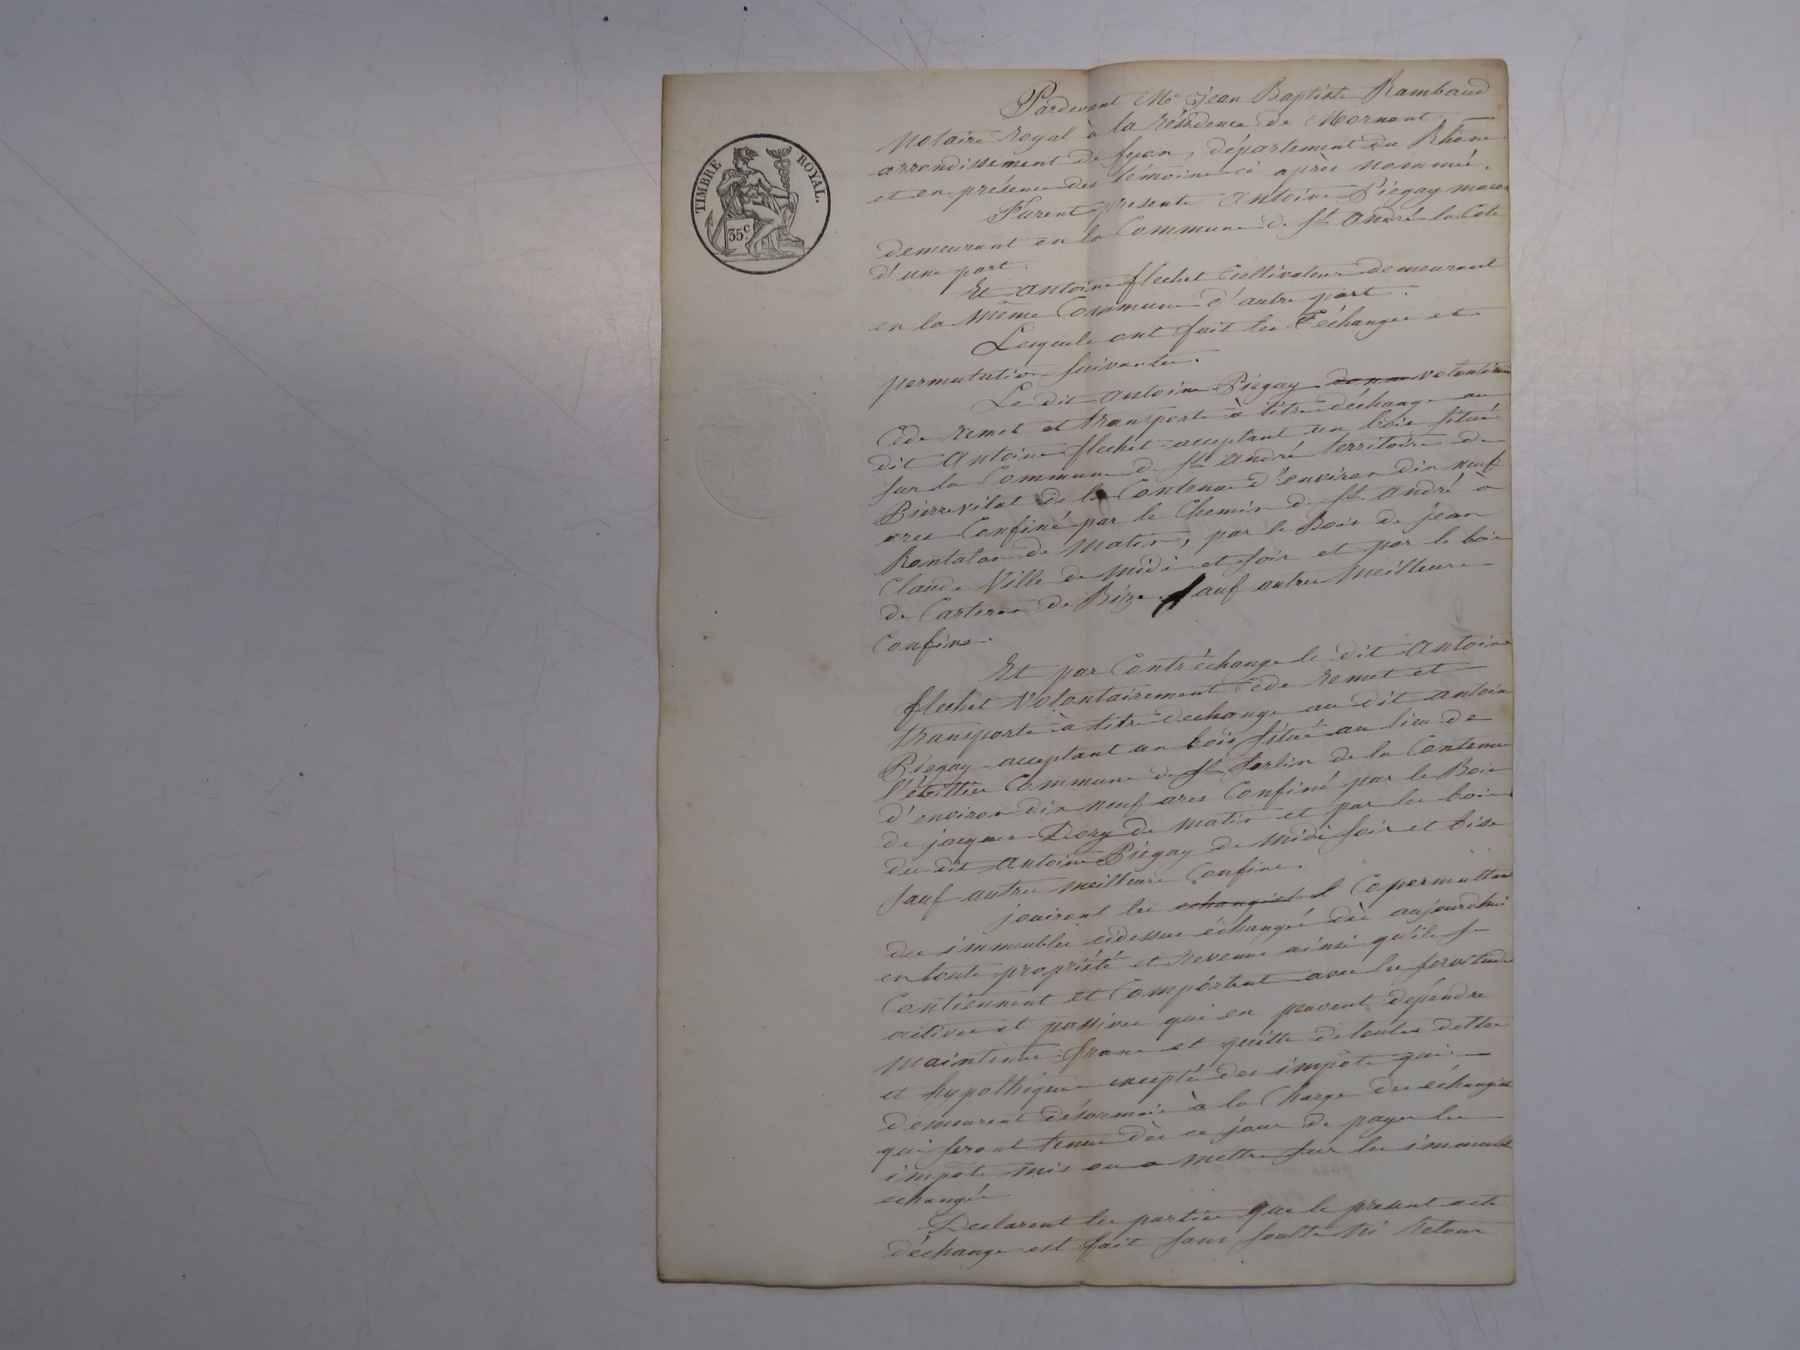 TIMBRE ROYAL.
35c
Pardevant Me Jean Baptiste Rambaud
Notaire royal à la résidence de Mornant
arrondissement de Lyon, département du Rhône
et en présence des témoins ci après nommés.
Furent présents Antoine Piégay maçon
demeurant en la Commune de St André la Côte
d'une part.
Et Antoine flechet Cultivateur demeurant
en la même Commune d'autre part.
Lesquels ont fait les échanges et
permutations suivantes.
Le dit Antoine Piégay donne volontairem
Cède remet et transporte à titre d'échange au
dit Antoine flechet acceptant un bois situé
sur la Commune de St André territoire de
Pierrevilat de la Contenue d'environ dix neuf
ares Confiné par le Chemin de St André à
Rontalon de matin, par le Bois de jean
Claude Ville de midi et soir et par le bois
de Carteron de Bize sauf autres meilleurs
Confins.
Et par Contréchange le dit Antoine
flechet Volontairement Cède remet et
transporte à titre dechange au dit antoine
Piégay acceptant un bois situé au lieu de
Commune de St Sorlin de la Contenue
d'environ dix neuf ares Confiné par le Bois
de jacques Dory de matin et par les bois
du dit Antoine Piégay de midi soir et bise
sauf autres meilleurs Confins.
jouiront les echangist Copermuttans
des immeubles cidessus échangés dès aujourdhui
en toute propriété et revenus ainsi qu'ils se
Contiennent et Comportent avec les servitudes
actives et passives qui en peuvent dépendre
maintenus francs et quitte de toutes dettes
et hypothèques excepté des impôts qui
demeurent désormais à la Charge des échangistes
qui seront tenus dès ce jour de payer les
impôts mis ou a mettre sur les immeubles
echangés
Declarent les parties que le présent acte
déchange est fait sans soulte ni retour